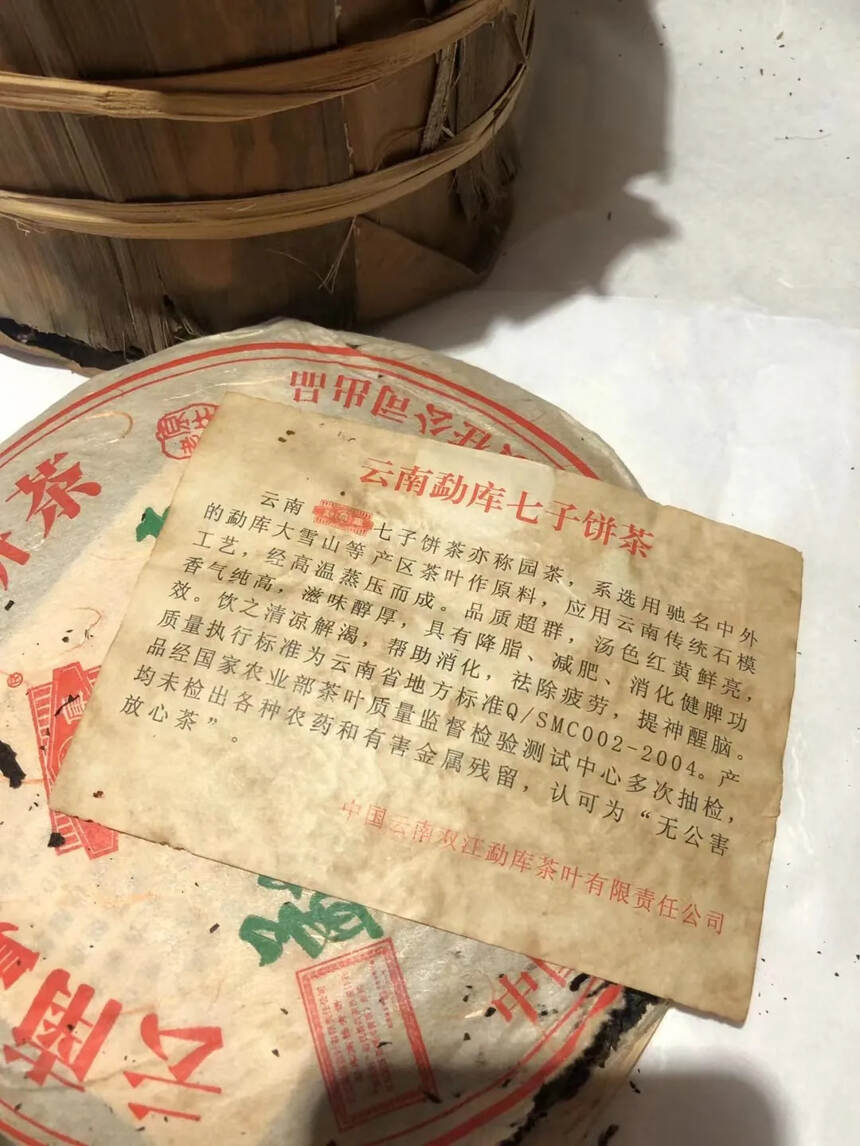 云南勐库七子饼茶
云南 七子饼茶亦称园茶，系选用驰名中外
的勐库大雪山等产区茶叶作原料，应用云南传统石模
工艺，经高温蒸压而成。品质超群，汤色红黄鲜亮，
香气纯高，滋味醇厚，具有降脂、减肥、消化健脾功
效。饮之清凉解渴，帮助消化，祛除疲劳，提神醒脑。
质量执行标准为云南省地方标准Q/SMC002-2004。产
品经国家农业部茶叶质量监督检验测试中心多次抽检，
均未检出各种农药和有害金属残留，认可为“无公害
放心茶”。
中国云南双江勐库茶叶有限责任公司
公司出品
茶
云南
中国